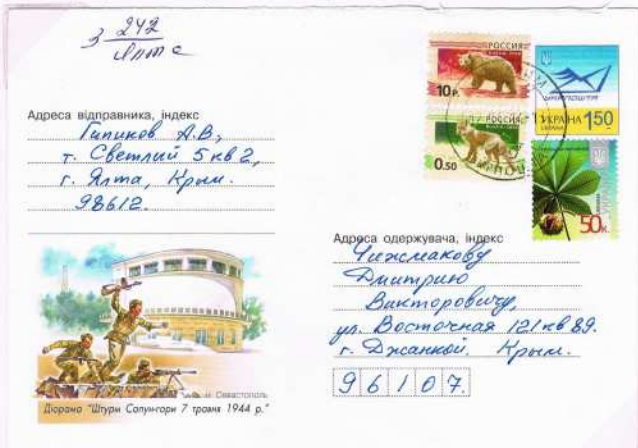 З 242
Ялта
РОССИЯ
10 Р.
РОССИЯ
0.50
УКРПОШТА
УКРАЇНА 1.50
UKRAINE
УКРАЇНА
50к.
Адреса відправника, індекс
А.В,
Светлий 5 кв 2,
г. Ялта, Крым.
98612.
Адреса одержувача, індекс
Чижмакову
Дмитрию
Викторовичу,
ул. Восточная 121 кв 89.
г. Джанкой, Крым.
96107.
м. Севастополь
Діорама "Штурм Сапун-гори 7 травня 1944 р."